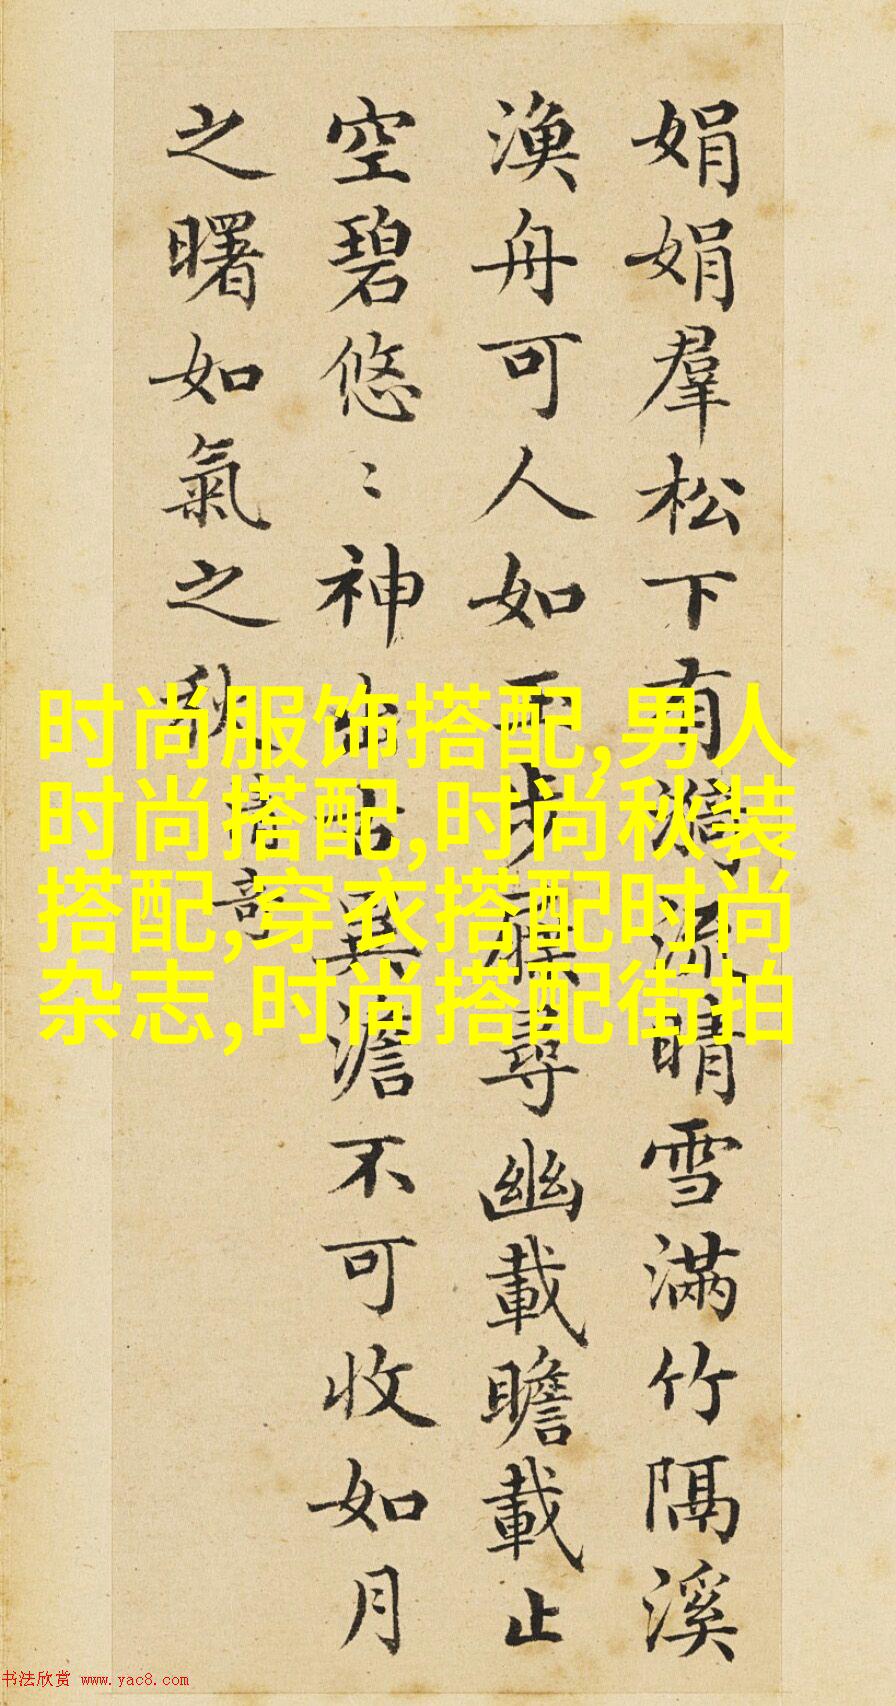 娟娟羣松下有漪流晴雪滿竹隔溪
漁舟可人如玉步屧尋幽載瞻載止
空碧悠〻神出古異澹不可收如月
之曙如氣之秋
清奇
时尚服饰搭配,男人
时尚搭配,时尚秋装
搭配,穿衣搭配时尚
杂志,时尚搭配街拍
书法欣赏 www.yac8.com